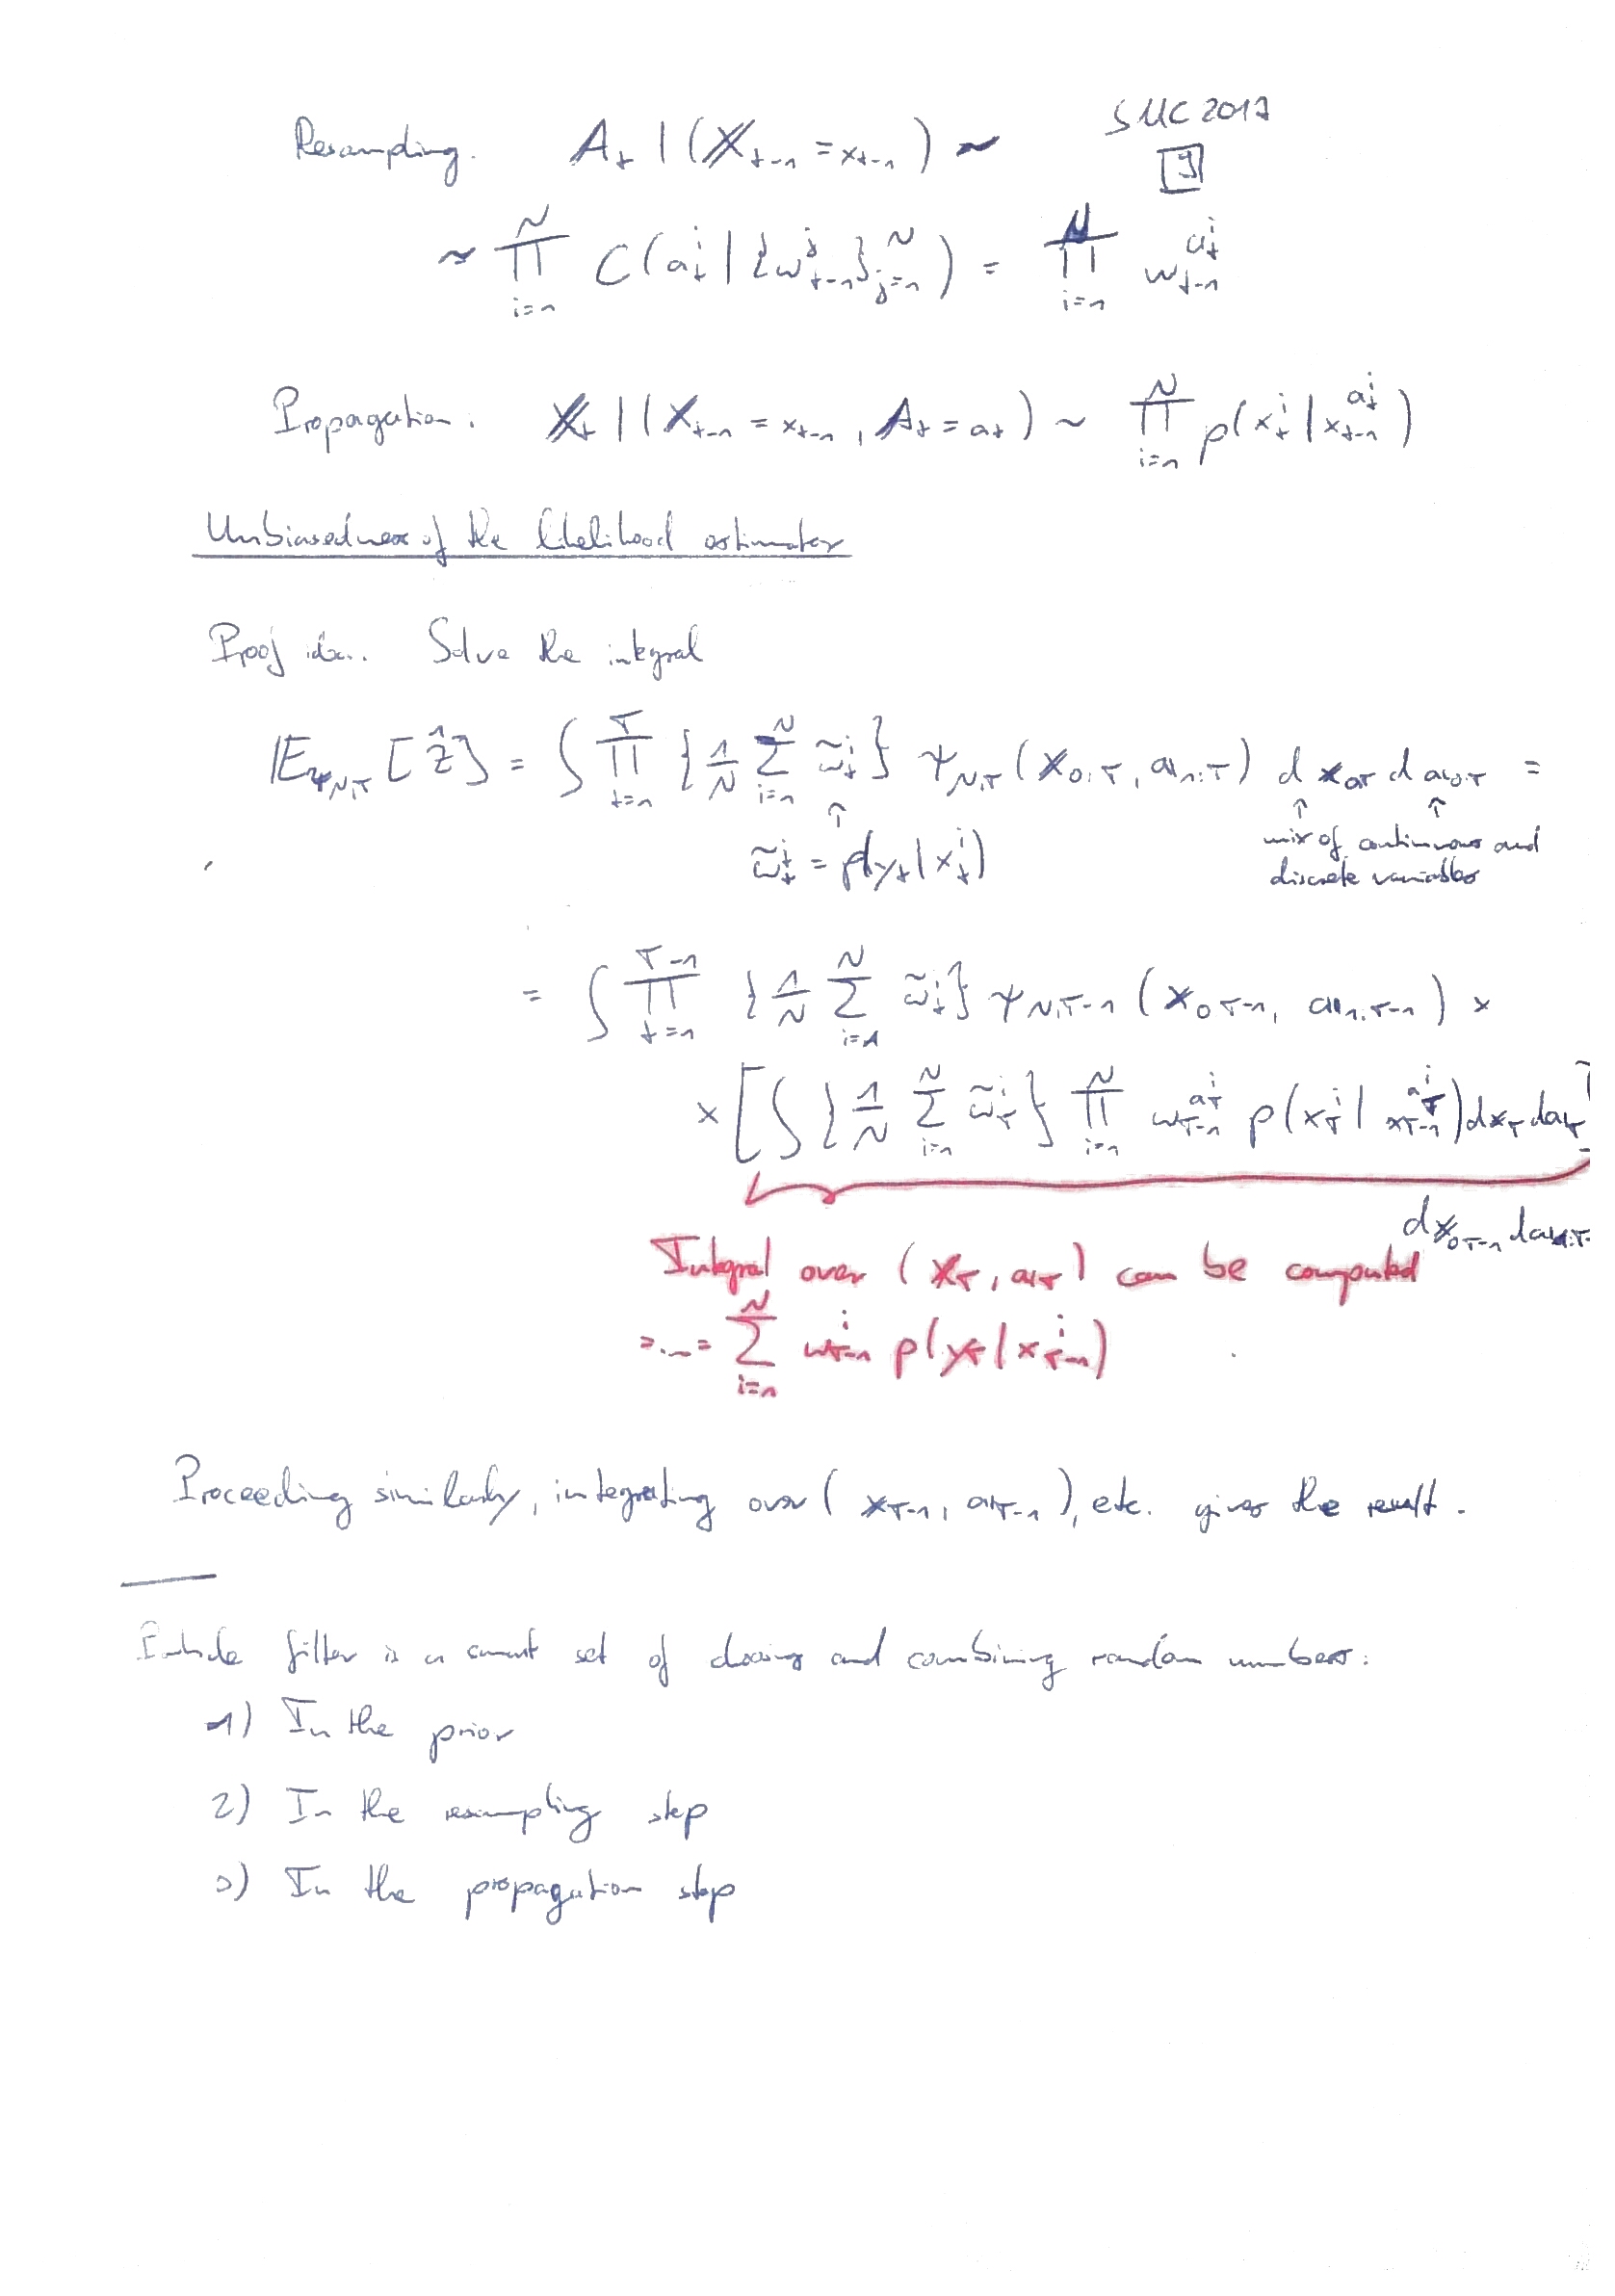 SMC 2017
Resampling: 𝔸_t | (𝕏_{t-1} = 𝕩_{t-1}) ~
[9]
~ ∏_{i=1}^{N} C(a_t^i | {w_{t-1}^j}_{j=1}^{N}) = ∏_{i=1}^{N} w_{t-1}^{a_t^i}
Propagation: 𝕏_t | (𝕏_{t-1} = 𝕩_{t-1}, 𝔸_t = 𝕒_t) ~ ∏_{i=1}^{N} p(x_t^i | x_{t-1}^{a_t^i})
Unbiasedness of the likelihood estimator
Proof idea: Solve the integral
𝔼_{ψ_{N,T}} [ẑ] = ∫ ∏_{t=1}^{T} {1/N ∑_{i=1}^{N} w̃_t^i} ψ_{N,T}(𝕩_{0:T}, 𝕒_{1:T}) d𝕩_{0:T} d𝕒_{0:T} =
↑ ↑ ↑
w̃_t^i = p(y_t | x_t^i) mix of continuous and
discrete variables
= ∫ ∏_{t=1}^{T-1} {1/N ∑_{i=1}^{N} w̃_t^i} ψ_{N,T-1}(𝕩_{0:T-1}, 𝕒_{1:T-1}) ×
× [∫ {1/N ∑_{i=1}^{N} w̃_T^i} ∏_{i=1}^{N} w_{T-1}^{a_T^i} p(x_T^i | x_{T-1}^{a_T^i}) d𝕩_T d𝕒_T]
d𝕩_{0:T-1} d𝕒_{1:T-
Integral over (𝕩_T, 𝕒_T) can be computed
= ... = ∑_{i=1}^{N} w_{T-1}^i p(y_T | x_{T-1}^i)
Proceeding similarly, integrating over (𝕩_{T-1}, 𝕒_{T-1}), etc. gives the result.
Particle filter is a smart set of and combining random numbers:
1) In the prior
2) In the resampling step
3) In the propagation step